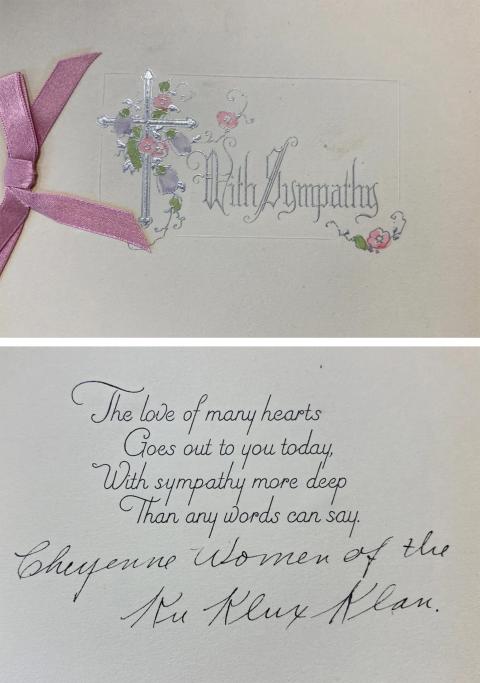 With Sympathy
The love of many hearts
Goes out to you today,
With sympathy more deep
Than any words can say.
Cheyenne Women of the
Ku Klux Klan.